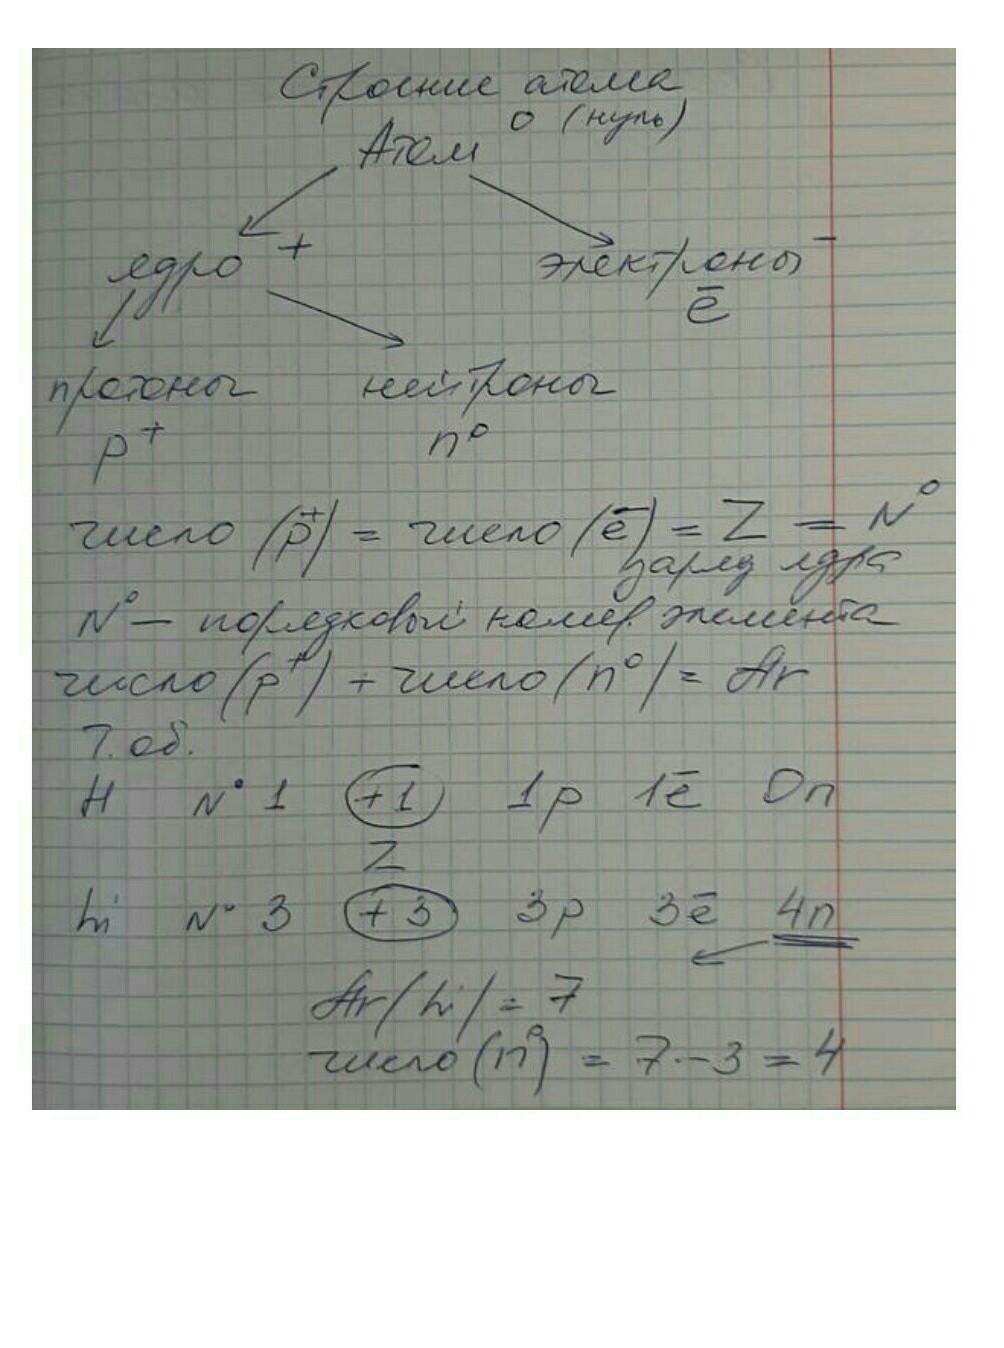 Строение атома
Атом 0 (нуль)
ядро + электроны –
ē
протоны нейтроны
p⁺ n⁰
число (p⁺) = число (ē) = Z = N⁰
заряд ядра
N⁰ — порядковый номер элемента
число (p⁺) + число (n⁰) = Ar
Т. об.
H N° 1 +1 1p 1ē 0n
Z
Li N° 3 +3 3p 3ē 4n
Ar(Li) = 7
число (n⁰) = 7 - 3 = 4